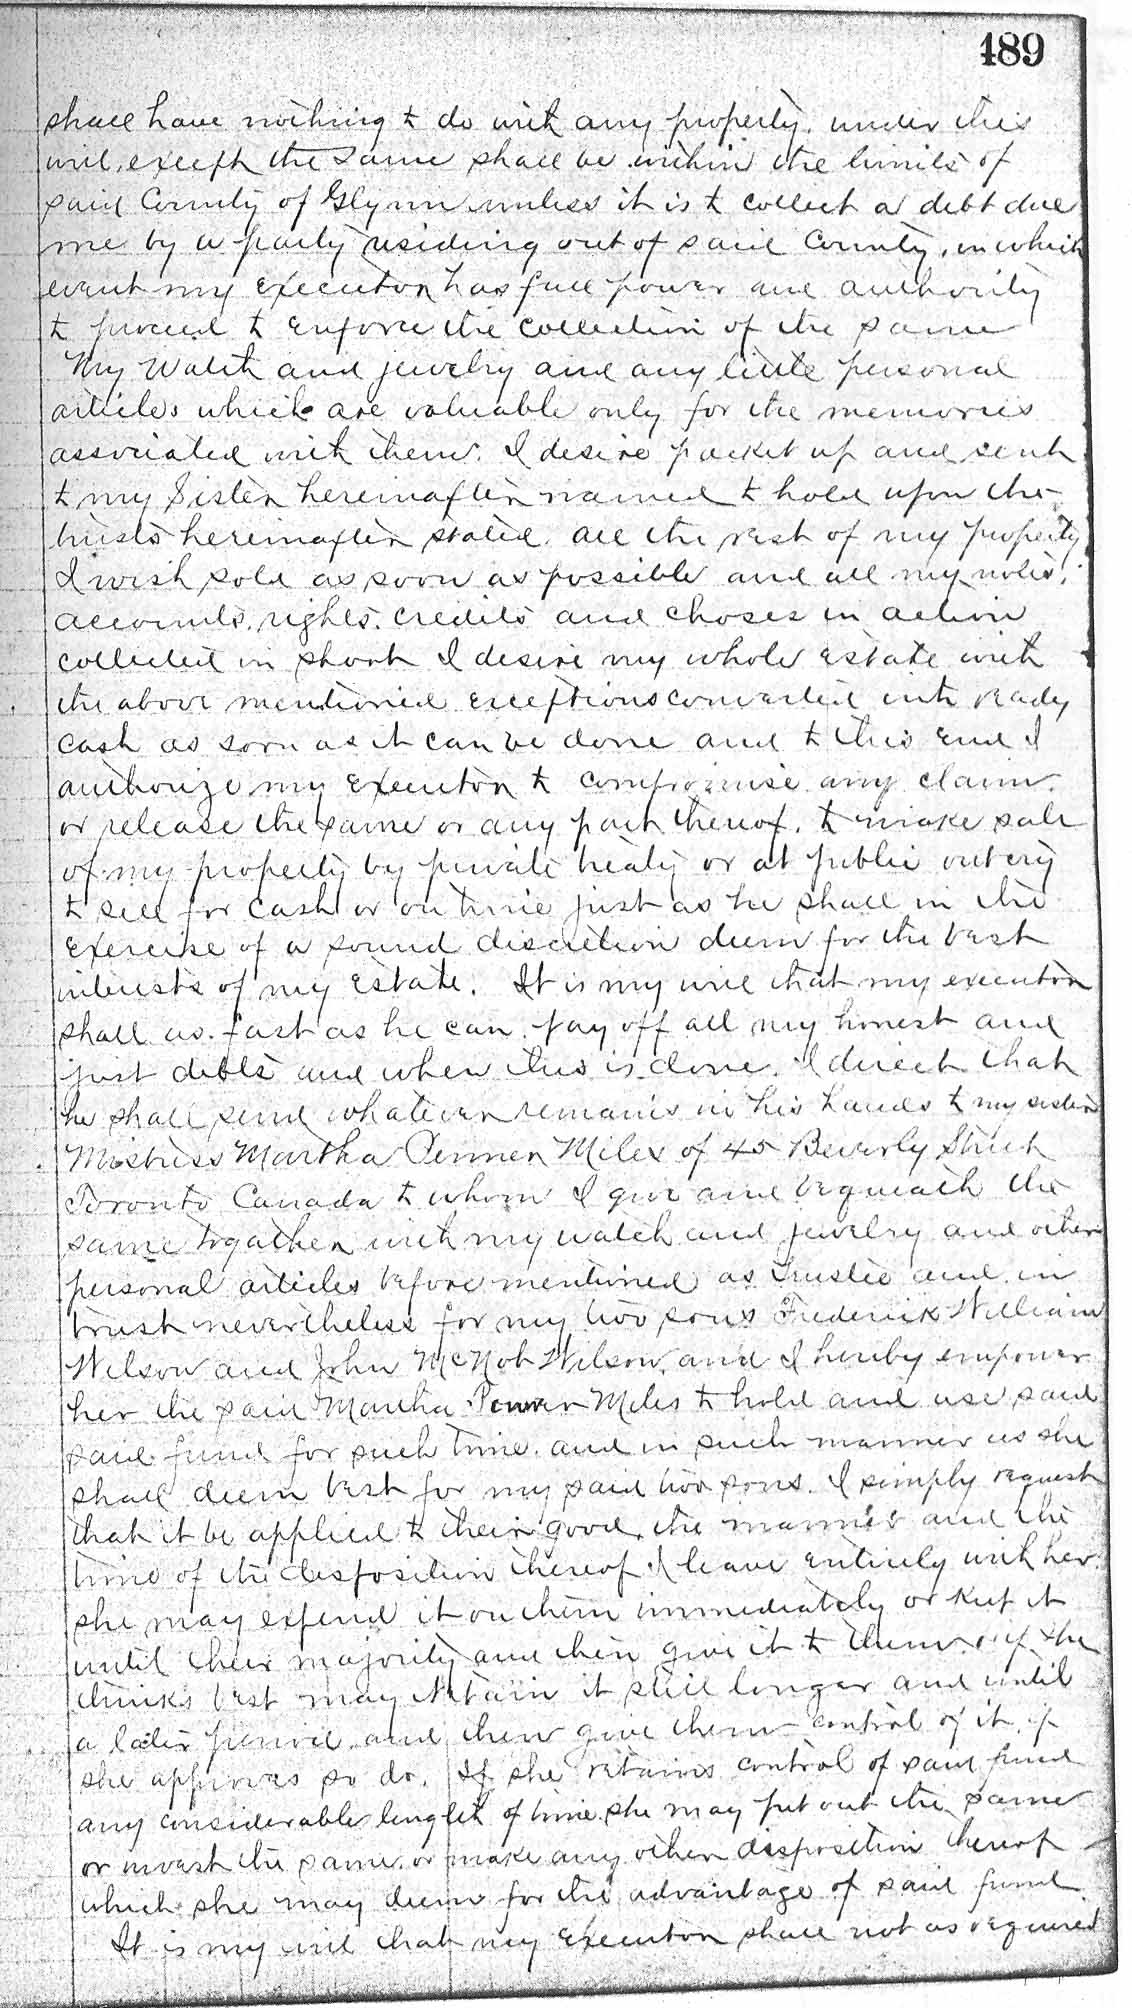 489
shall have nothing to do with any property under this
will, except the same shall be within the limits of
said County of Glynn unless it is to collect a debt due
me by a party residing out of said County, in which
event my executor has full power and authority
to proceed to enforce the collection of the same
My Watch and jewelry and any little personal
articles which are valuable only for the memories
associated with them. I desire packet up and sent
to my Sister hereinafter named to hold upon the
trusts hereinafter stated. All the rest of my property
I wish sold as soon as possible and all my notes,
accounts, rights, credits and choses in action
collected in short I desire my whole estate with
the above mentioned exceptions converted into ready
cash as soon as it can be done and to this end I
authorize my executor to compromise any claim
or release the same or any part thereof, to make sale
of my property by private treaty or at public outcry
to sell for cash or on time just as he shall in the
exercise of a sound discretion deem for the best
interests of my estate. It is my will that my executor
shall as fast as he can pay off all my honest and
just debts and when this is done, I direct that
he shall send whatever remains in his hands to my sister
Mistress Martha Penner Miles of 45 Beverly Street
Toronto Canada to whom I give and bequeath the
same together with my watch and jewelry and other
personal articles before mentioned as Trustee and in
trust nevertheless for my two sons Frederick William
Wilson and John McNob Wilson, and I hereby empower
her the said Martha Miles to hold and use said
said fund for such time and in such manner as she
shall deem best for my said two sons. I simply request
that it be applied to their good, the manner and the
time of the disposition thereof I leave entirely with her.
she may expend it on them immediately or keep it
until their majority and then give it to them or if she
thinks best may retain it still longer and until
a later period and then give them control of it, if
she approves so do. If she retains control of said fund
any considerable length of time she may put out the same
or invest the same or make any other disposition thereof
which she may deem for the advantage of said fund.
It is my will that my executor shall not as required